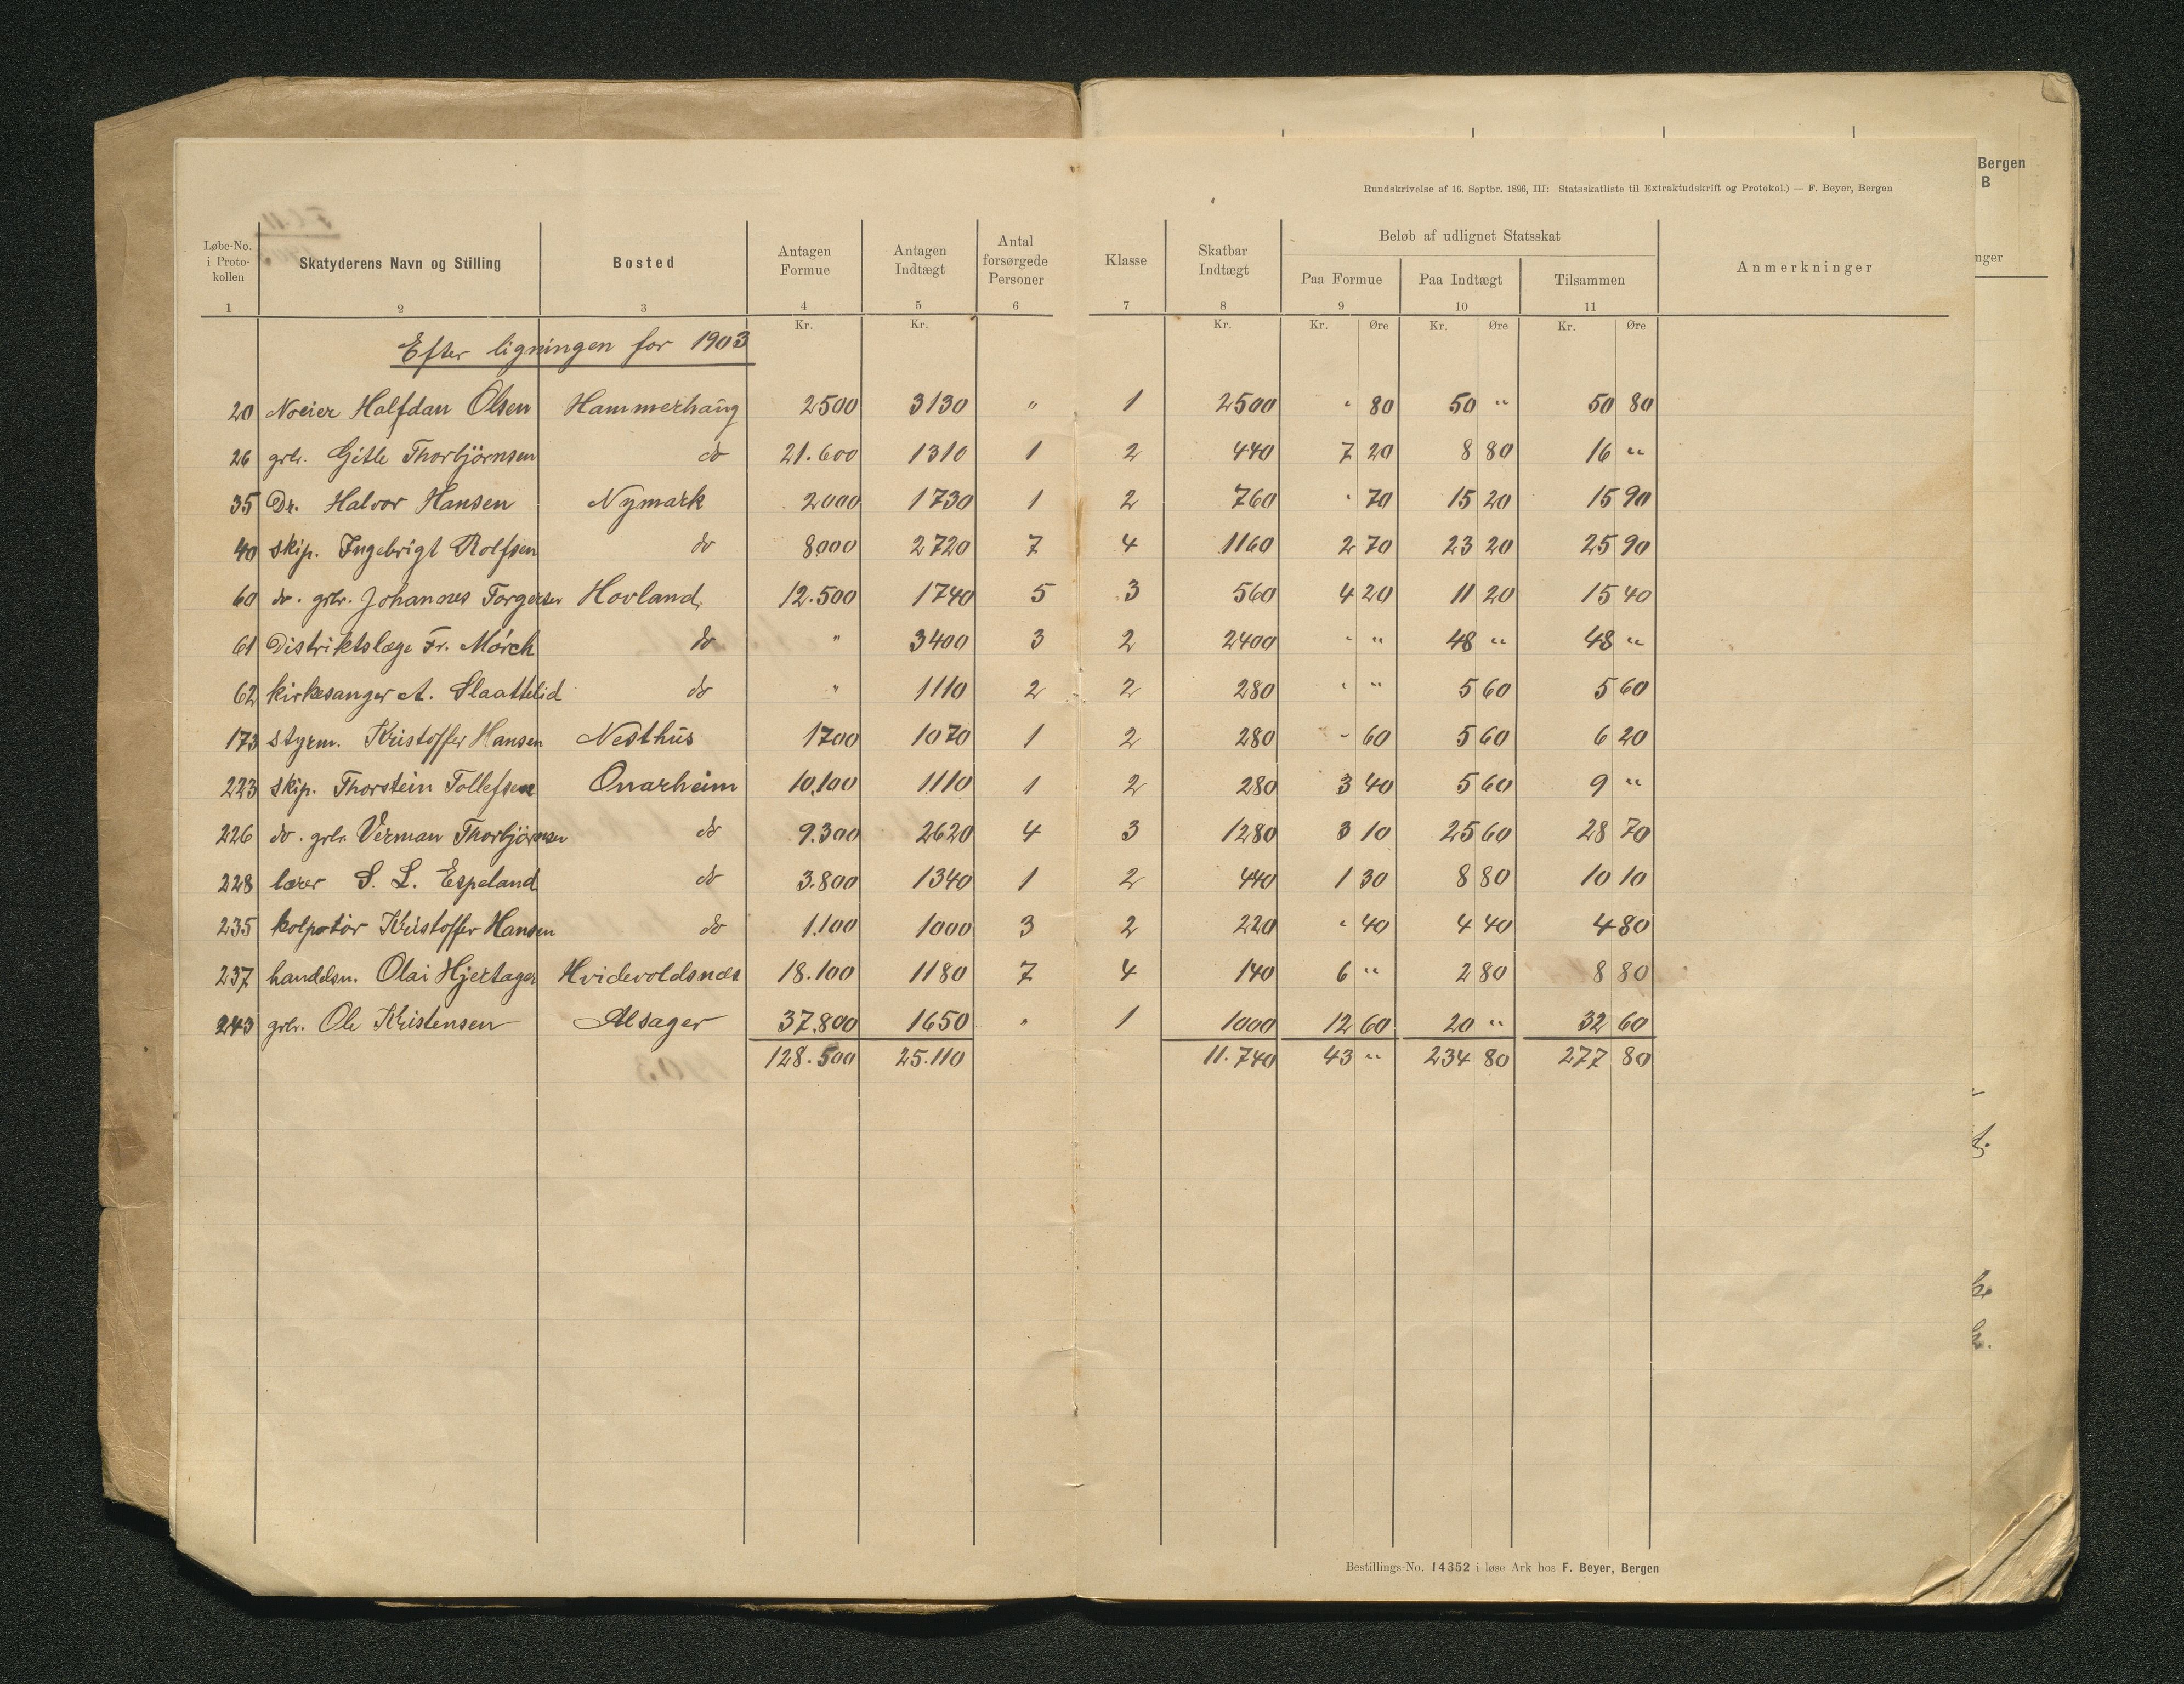 Rundskrivelse af 16. Septbr. 1896, III: Statsskatliste til Extraktudskrift og Protokol.) — F. Beyer, Bergen
Bergen
B
nger
Løbe-No. i Proto-kollen | Skatyderens Navn og Stilling | Bosted | Antagen Formue | Antagen Indtægt | Antal forsørgede Personer | Klasse | Skatbar Indtægt | Beløb af udlignet Statsskat | Anmerkninger
Paa Formue | Paa Indtægt | Tilsammen
1 2 3 4 5 6 7 8 9 10 11
Kr. Kr. Kr. Kr. Øre Kr. Øre Kr. Øre
Efter ligningen for 1903
20 Noeier Halfdan Olsen Hammerhaug 2500 3130 " 1 2500 " 80 50 " 50 80
26 grbr. Gitle Thorbjørnsen do 21.600 1310 1 2 440 7 20 8 80 16 "
35 Dr. Halvor Hansen Nymark 2000 1730 1 2 760 " 70 15 20 15 90
40 Skip. Ingebrigt Rolfsen do 8000 2720 7 4 1160 2 70 23 20 25 90
60 do. grbr. Johannes Torgersen Hovland 12.500 1740 5 3 560 4 20 11 20 15 40
61 Distriktslæge Fr. Mørch do " 3400 3 2 2400 " " 48 " 48 "
62 kirkesanger A. Slaattelid do " 1110 2 2 280 " " 5 60 5 60
173 styrm. Kristoffer Hansen Nesthus 1700 1070 1 2 280 " 60 5 60 6 20
223 Skip. Thorstein Tollefsen Onarheim 10.100 1110 1 2 280 3 40 5 60 9 "
226 do. grbr. Verman Thorbjørnsen do 9.300 2620 4 3 1280 3 10 25 60 28 70
228 lærer S. L. Espeland do 3.800 1340 1 2 440 1 30 8 80 10 10
235 kolportør Kristoffer Hansen do 1.100 1000 3 2 220 " 40 4 40 4 80
237 handelsn. Olai Hjertager Hvidevoldsnæs 18.100 1180 7 4 140 6 " 2 80 8 80
243 grbr. Ole Kristensen Alsager 37.800 1650 " 1 1000 12 60 20 " 32 60
128.500 25.110 11.740 43 " 234 80 277 80
Bestillings-No. 14352 i løse Ark hos F. Beyer, Bergen